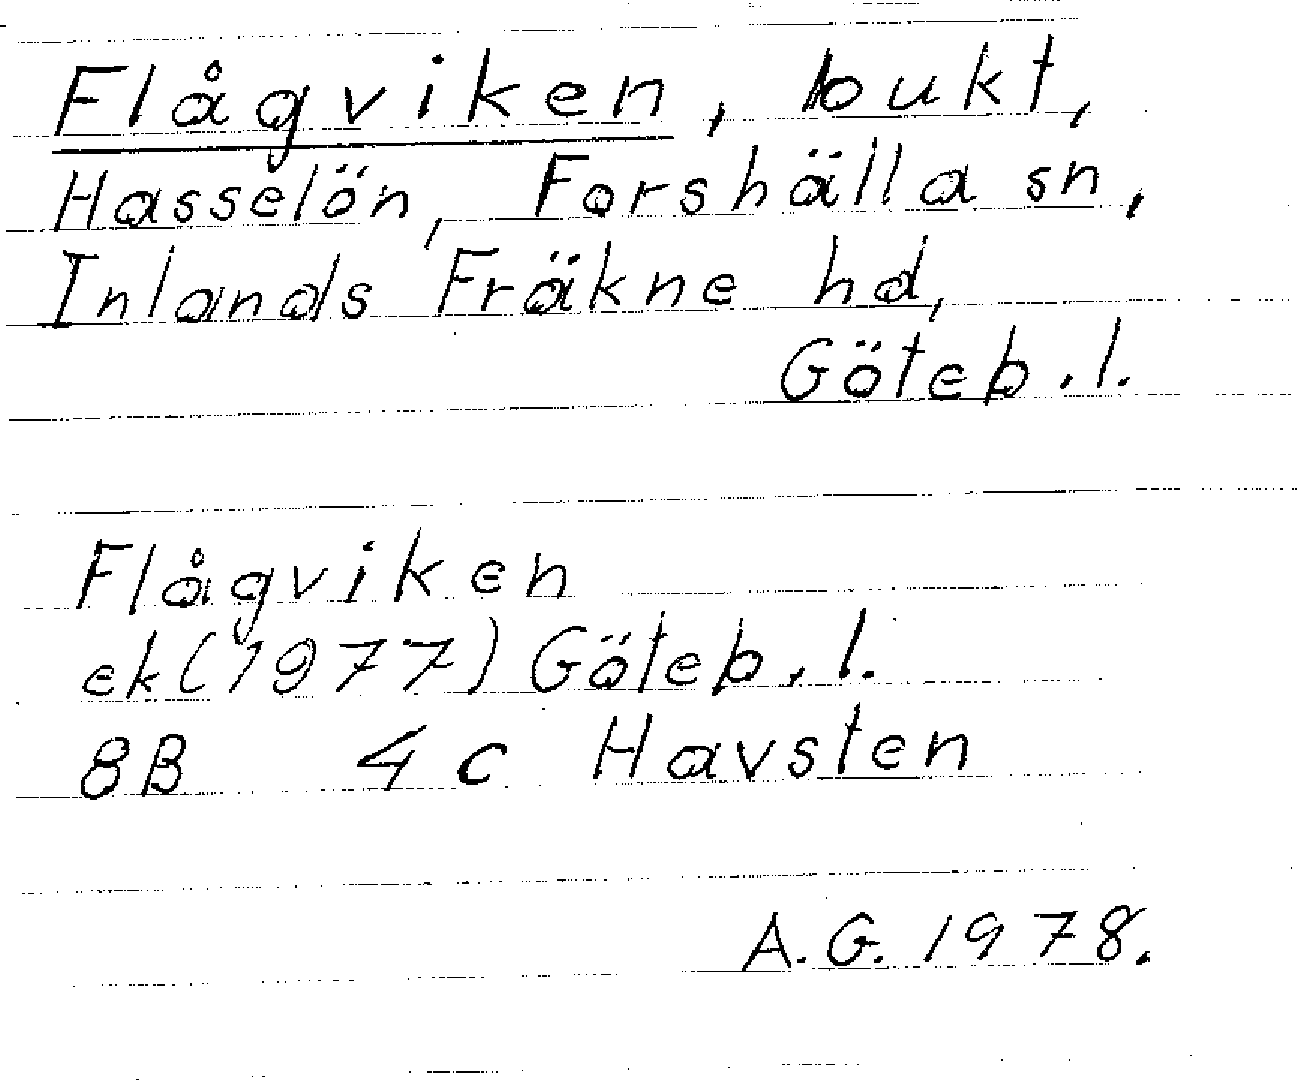 Flågviken, bukt,
Hasselön, Forshälla sn,
Inlands Fräkne hd,
Göteb.l.
Flågviken
ek(1977) Göteb.l.
8B 4c Havsten
A.G. 1978.